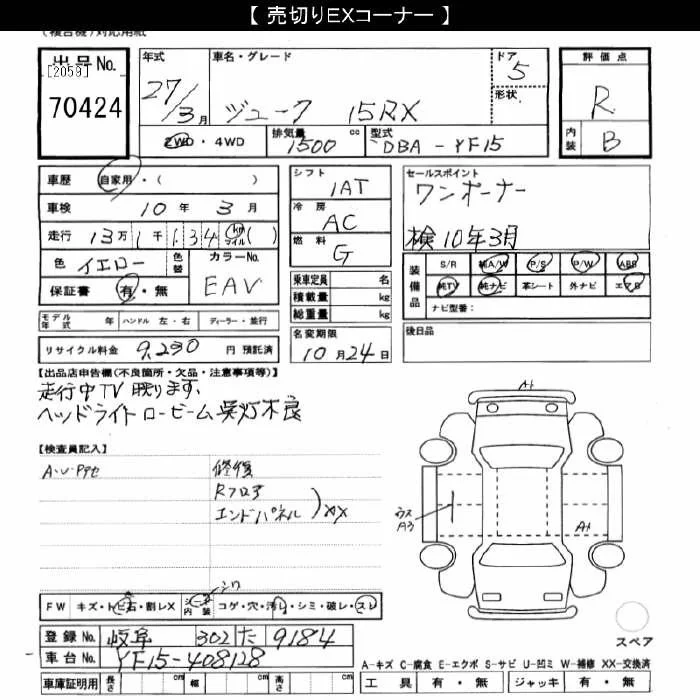 【 売切りEXコーナー 】
(複合機)対応用紙
出品No.
[2059]
70424
年式 27/3月
車名・グレード ジューク 15RX
ドア 5
形状
2WD・4WD
排気量 1500 cc
型式 DBA-YF15
評価点 R
内装 B
車歴 自家用・( )
車検 10年 3月
走行 13万1千134 km マイル( )
色 イエロー 色替
カラーNo. EAV
保証書 有・無
シフト 1AT
冷房 AC
燃料 G
セールスポイント
ワンオーナー
検10年3月
装備品
S/R 純A/W P/S P/W ABS
純TV 純ナビ 革シート 外ナビ エアB
ナビ型番:
乗車定員 名
積載量 kg
総重量 kg
モデル年式 年 ハンドル 左・右 ディーラー・並行
リサイクル料金 9,290 円 預託済
名変期限
10月24日
後日品
【出品店申告欄(不良箇所・欠品・注意事項等)】
走行中TV映ります。
ヘッドライトロービーム点灯不良
【検査員記入】
A・U・Pテセ
修復
Rフロア
エンドパネル )XX
A1
ウス
A3
A1
シワ
FW キズ・トビ石・割レX
シート内装 コゲ・穴・汚レ・シミ・破レ・スレ
登録No. 岐阜 302 た 9184
車台No. YF15-408128
車庫証明用 長さ cm 幅 cm 高さ cm
スペア
A-キズ C-腐食 E-エクボ S-サビ U-凹ミ W-補修 XX-交換済
工具 有・無 ジャッキ 有・無